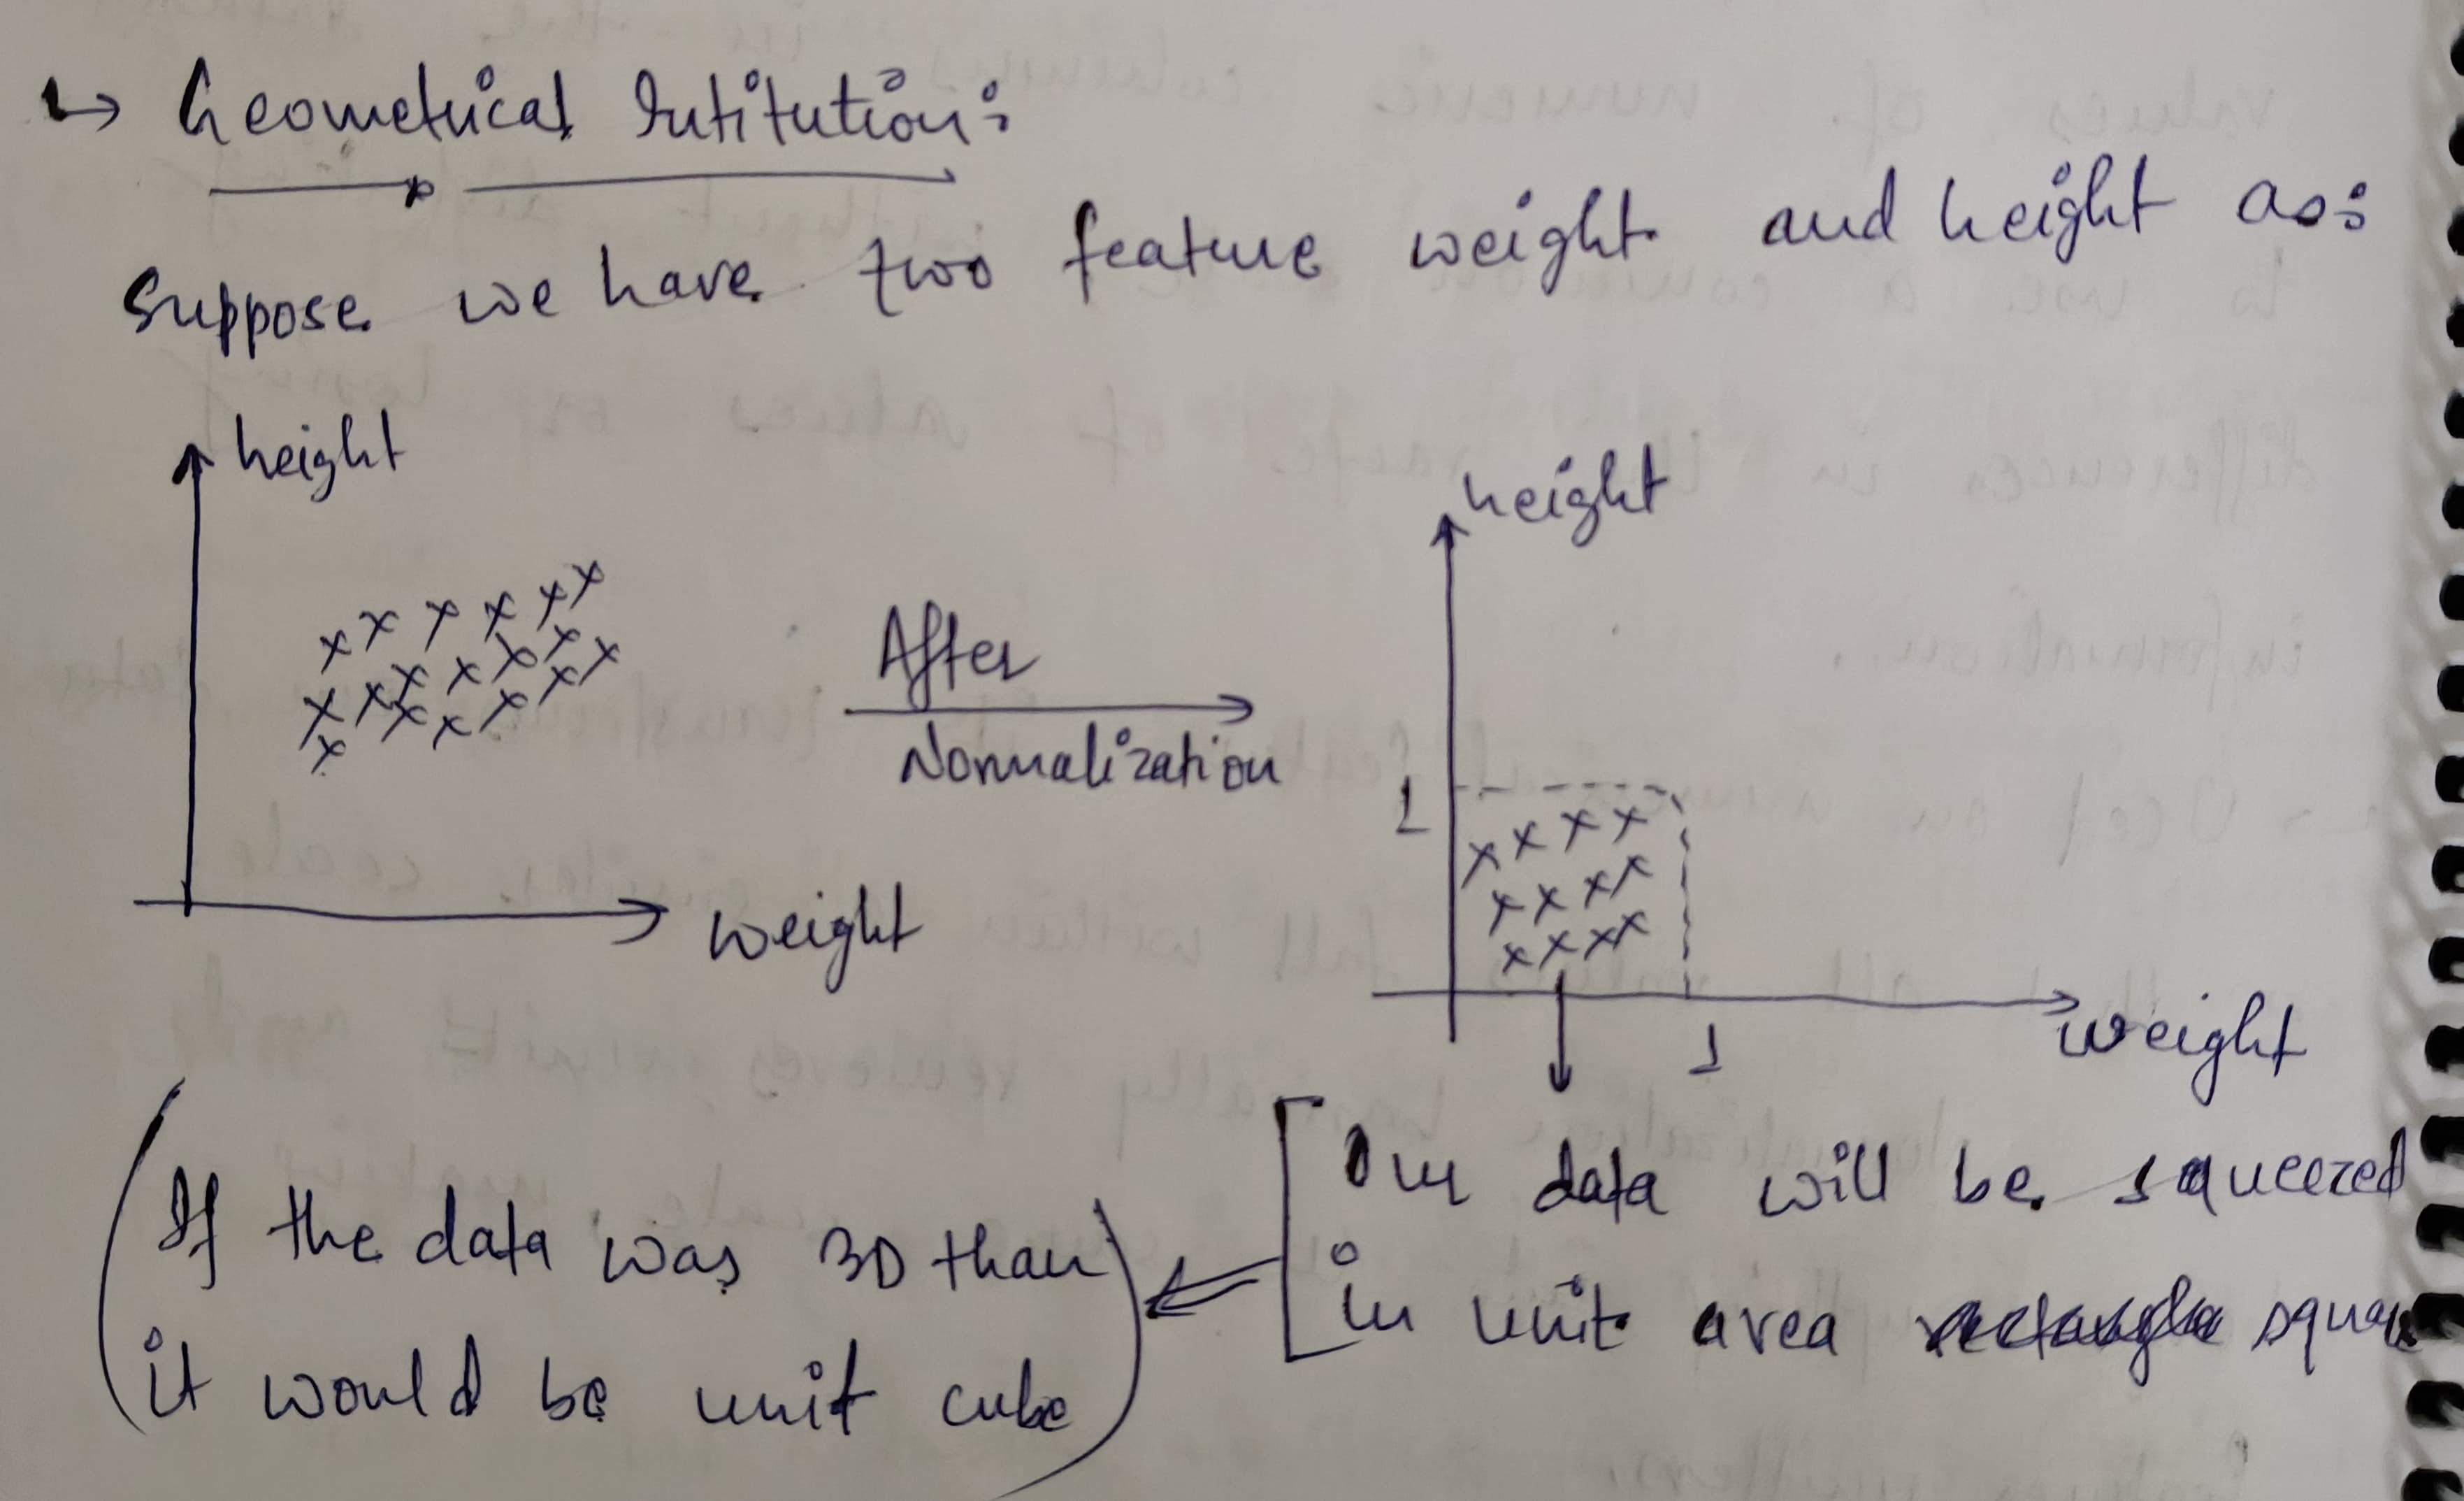 ↳ Geometrical Intitution:
Suppose we have two feature weight and height as:
height
weight
After
Normalization
height
1
1
weight
Our data will be squeezed
in unit area rectangle square
(If the data was 3D than
it would be unit cube)